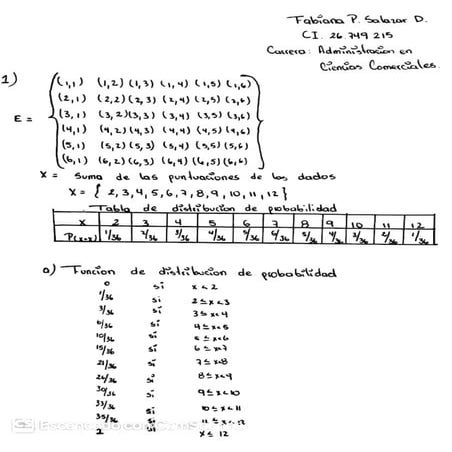 Fabiana P. Salazar D.
C.I. 26.749.215
Carrera: Administración en
Ciencias Comerciales.
1)
(1,1) (1,2) (1,3) (1,4) (1,5) (1,6)
(2,1) (2,2) (2,3) (2,4) (2,5) (2,6)
E = (3,1) (3,2) (3,3) (3,4) (3,5) (3,6)
(4,1) (4,2) (4,3) (4,4) (4,5) (4,6)
(5,1) (5,2) (5,3) (5,4) (5,5) (5,6)
(6,1) (6,2) (6,3) (6,4) (6,5) (6,6)
X = suma de las puntuaciones de los dados
X = { 2,3,4,5,6,7,8,9,10,11,12}
Tabla de distribucion de probabilidad
X 2 3 4 5 6 7 8 9 10 11 12
P(x=x) 1/36 2/36 3/36 4/36 5/36 6/36 5/36 4/36 3/36 2/36 1/36
a) Funcion de distribucion de probabilidad
0 si x < 2
1/36 si 2 ≤ x < 3
3/36 si 3 ≤ x < 4
6/36 si 4 ≤ x < 5
10/36 si 5 ≤ x < 6
15/36 si 6 ≤ x < 7
21/36 si 7 ≤ x < 8
26/36 si 8 ≤ x < 9
30/36 si 9 ≤ x < 10
33/36 si 10 ≤ x < 11
35/36 si 11 ≤ x < 12
si x ≤ 12
CS Escaneado con CamScanner